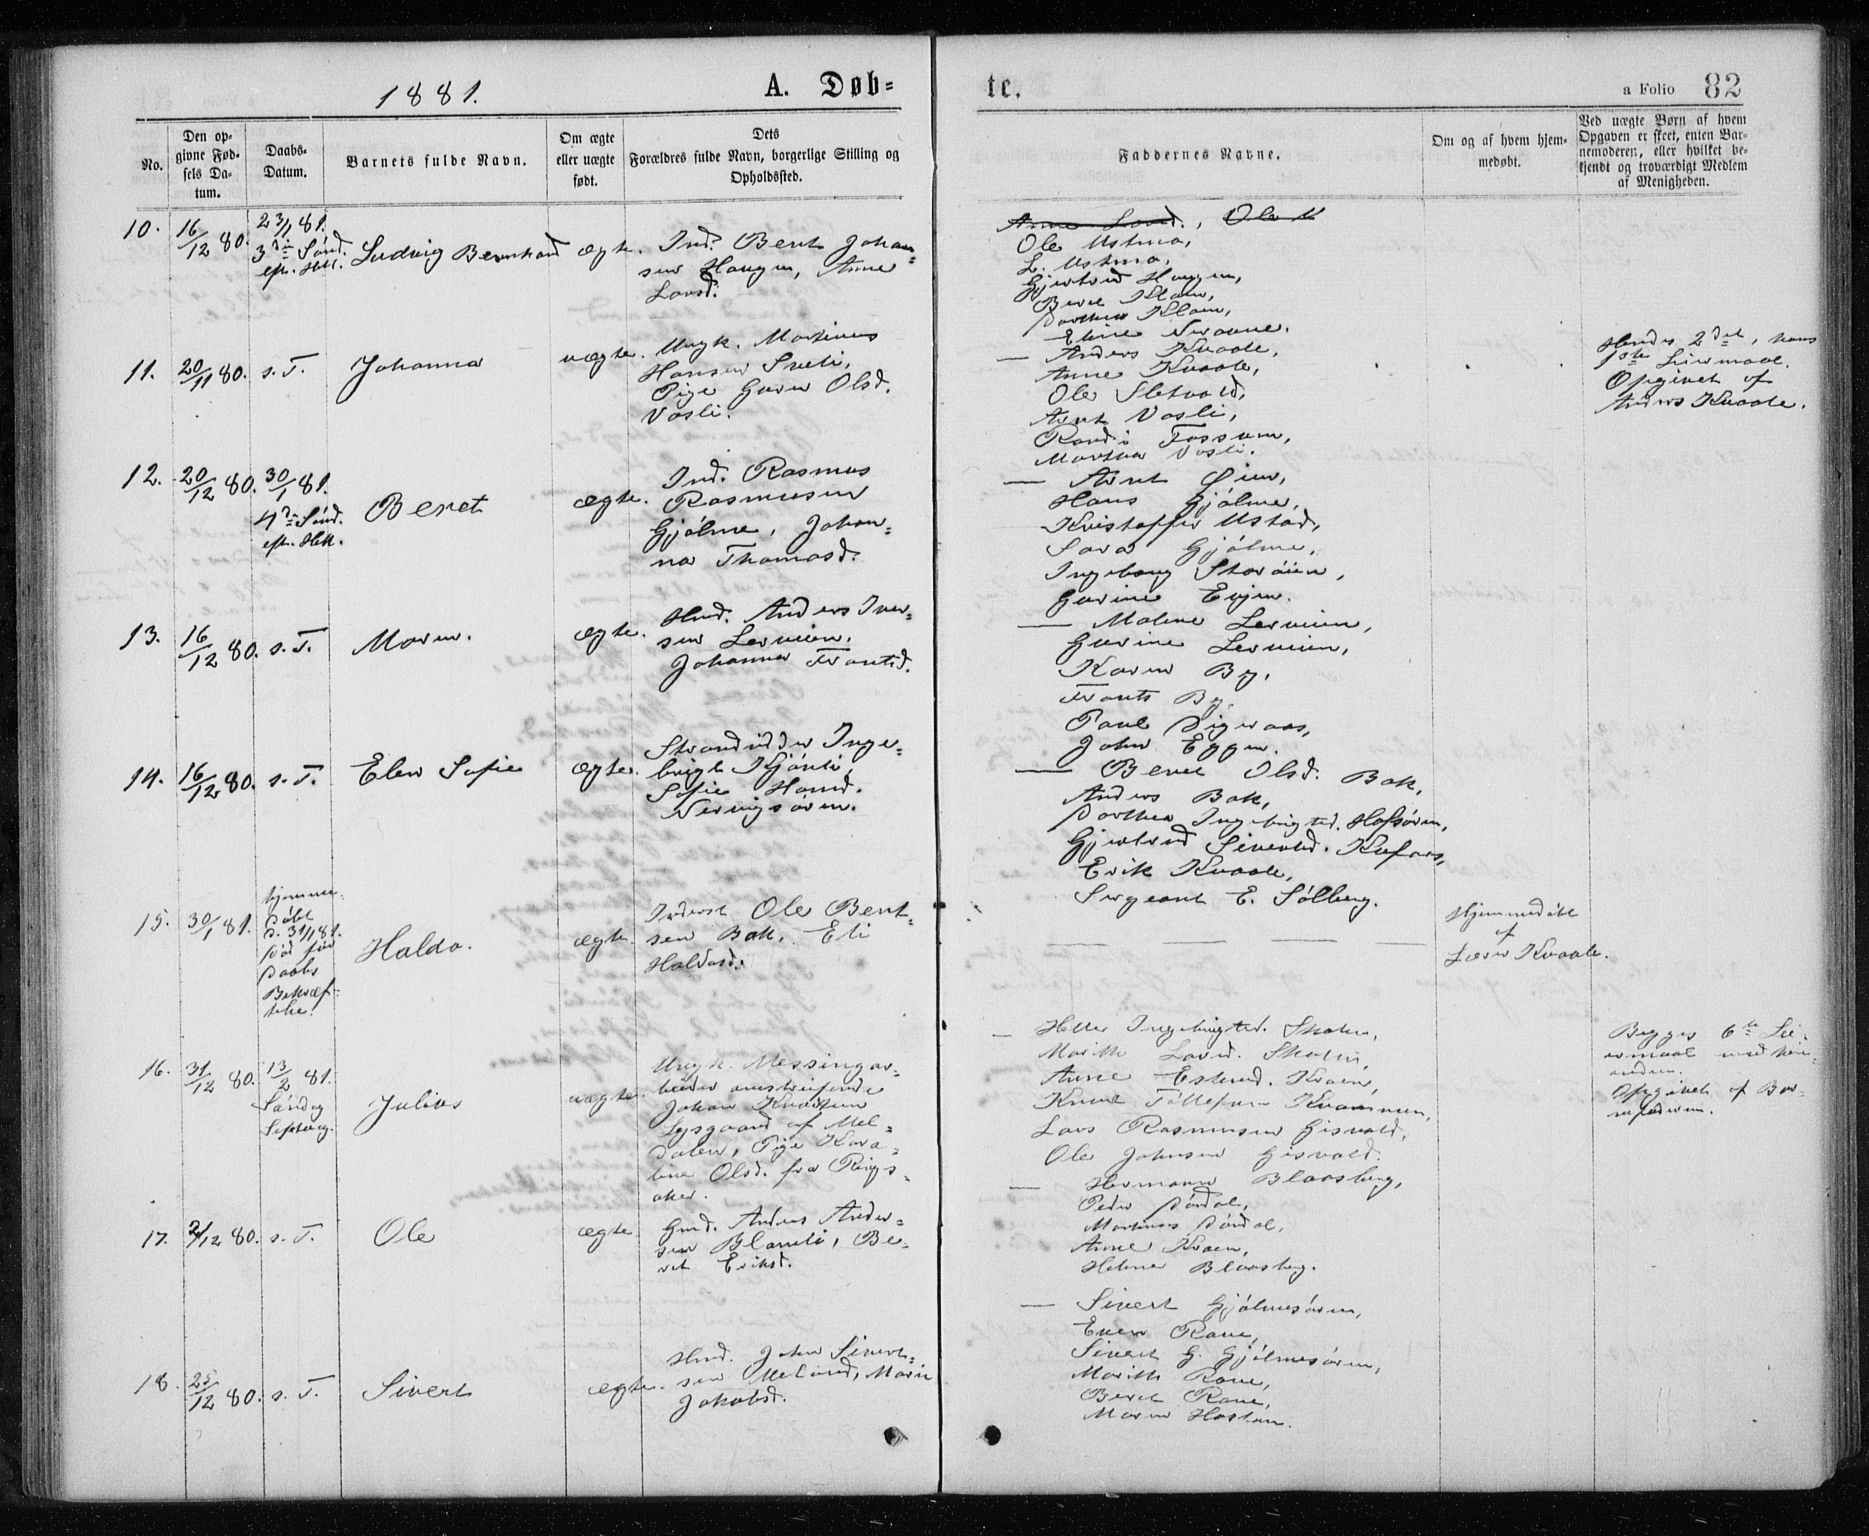 1881.
A. Døb=
te.
a Folio 82
No.
Den op-
givne Fød-
sels Da-
tum.
Daabs-
Datum.
Barnets fulde Navn.
Om ægte
eller uægte
født.
Dets
Forældres fulde Navn, borgerlige Stilling og
Opholdssted.
Faddernes Navne.
Om og af hvem hjem-
medøbt.
Ved uægte Børn af hvem
Opgaven er skeet, enten Bar-
nemoderen, eller hvilket be-
kjendt og troværdigt Medlem
af Menigheden.
10.
16/12 80.
23/1 81.
3die Sønd.
eft. Hell.
Ludvig Bernhard
ægte.
Ind. Bent Johan-
sen Haugen, Anne
Larsd.
Anne Larsd., Ole U
Ole Ustmo,
L. Ustmo,
Gjertrud Haugen,
Beret Kloen,
Dorthea Kloen,
Eline
11.
20/11 80.
s. T.
Johanna
uægte.
Ungk. Martinus
Hansen Sveli,
Pige Guru Olsd.
Vasli.
— Anders Kvaale,
Anne Kvaale,
Ole Sletvold,
Arnt Vasli,
Randi Fossum,
Martha Vasli.
Hendes 2det, hans
1ste Leiermaal.
Opgivet af
Anders Kvaale.
12.
20/12 80.
30/1 81.
4de Sønd.
eft. Hell.
Beret
ægte.
Ind. Rasmus
Rasmussen
Gjølme, Johan-
na Thomasd.
— Arnt Øien,
Hans Gjølme,
Kristoffer Ustad,
Sara Gjølme,
Ingeborg Storøien,
Gurine Evjen.
13.
16/12 80.
s. T.
Maren.
ægte.
Hmd. Anders Iver-
sen Lerveien,
Johanna Frantsd.
— Malene Lerveien,
Gurine Lerveien,
Karen By,
Frants By,
Paul Digeraas,
John Eggen.
14.
16/12 80.
s. T.
Elen Sofie
ægte.
Strandsidder Inge-
brigt Kjønli,
Sofie Hansd.
Nervigsøren.
— Beret Olsd. Bak,
Anders Bak,
Dorthea Ingebrigtsd. Hofsøren,
Gjertrud Sivertsd.
Erik Kvaale,
Sergeant E. Sølberg.
15.
30/1 81.
hjemme-
døbt
d. 31/1 81.
Død før
Daabs
Bekræf-
telse.
Haldo.
ægte.
Inderst Ole Bent-
sen Bak, Eli
Haldosd.
— — — — —
Hjemmedøbt
af
Lærer Kvaale.
16.
31/12 80.
13/2 81.
Søndag
Septuag.
Julius
uægte.
Ungk. Messingar-
beider omstreifende
Johan Knudsen
Lysgaard af Mel-
dalen, Pige Kara-
line Olsd. fra Rings-
aker.
— Ingebrigtsd. Skalen,
Marith Larsd. Skalen,
Anne Estensd. Kvaen,
Knut Tollefsen
Lars Rasmussen Gisvold,
Ole Johnsen Gisvold.
Begges 6te Lei-
ermaal med hin-
anden.
Opgivet af Bar-
nefaderen.
17.
21/12 80.
s. T.
Ole
ægte
Gmd. Anders Ander-
sen Blaasli, Be-
ret Eriksd.
— Hermann Blaasberg,
Peder Dørdal,
Martinus Dørdal,
Anne Kvaen,
Helene Blaasberg.
18.
25/12 80.
s. T.
Sivert
ægte.
Hmd. John Sivert-
sen Melund, Marie
Jakobsd.
— Sivert Gjølmesøren,
Even Rane,
Sivert G. Gjølmesøren,
Marith Rane,
Beret Rane,
Maren